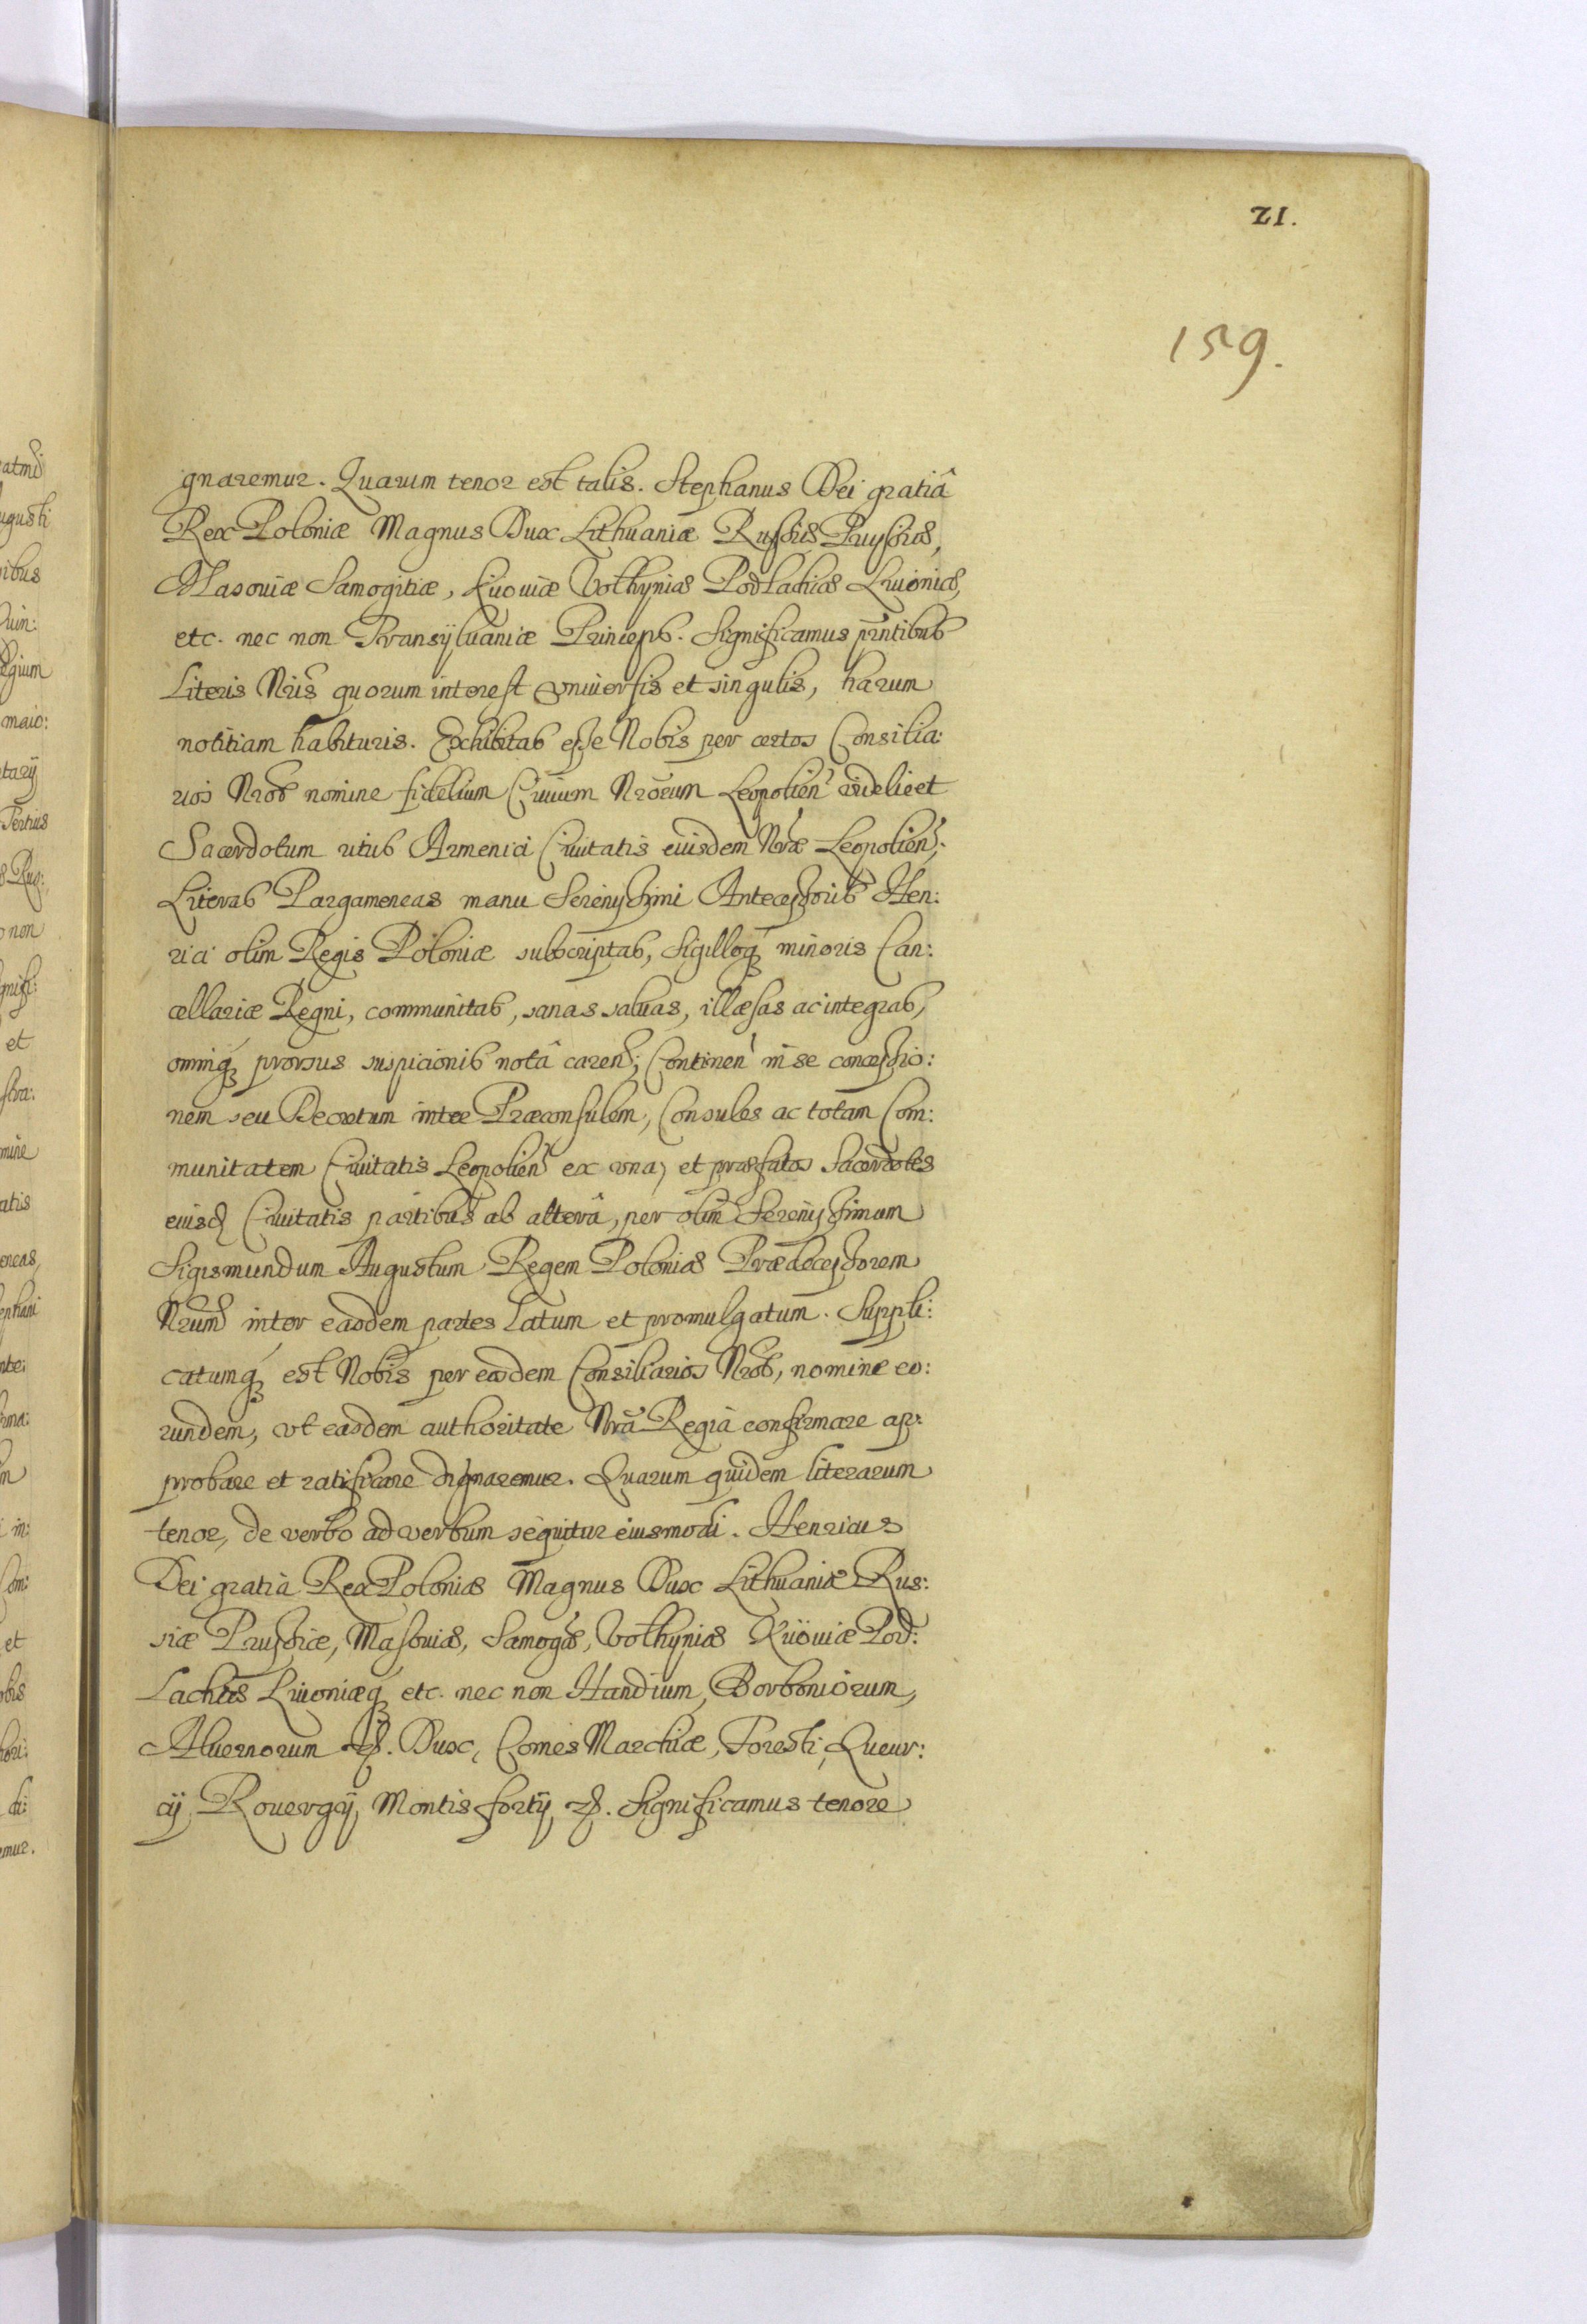 21.
159.
gnaremur. Quarum tenor est talis. Stephanus Dei gratiâ
Rex Poloniæ Magnus Dux Lithuaniæ Russiæ Prussiæ,
Masouiæ Samogitiæ, Kiiouiæ Volhyniæ Podlachiæ Liuoniæ,
etc. nec non Transÿluaniæ Princeps. Significamus pñtibus
Literis Nr̃is quorum interest vniuersis et singulis, harum
notitiam habituris. Exhibitas esse Nobis per certos Consilia:
rios Nr̃os nomine fidelium Ciuium Nr̃orum Leopolien̄ videlicet
Sacerdotum ritus Armenici Ciuitatis eiusdem Nr̃æ Leopolien̄;
Literas Pargameneas manu Serenissimi Antecessoris Hen:
rici olim Regis Poloniæ subscriptas, Sigilloq minoris Can:
cellariæ Regni, communitas, sanas saluas, illæsas ac integras,
omniq prorsus suspicionis notâ caren̄; Continen̄ in se concessio:
nem seu Decretum inter Præconsulem, Consules ac totam Com:
munitatem Ciuitatis Leopolien̄ ex vna, et præfatos Sacerdotes
eiusd Ciuitatis partibus ab alterâ, per olim Serenissimum
Sigismundum Augustum Regem Poloniæ Prædecessorem
Nr̃um inter easdem partes latum et promulgatum. Suppli:
catumq est Nobis per eosdem Consiliarios Nr̃os, nomine eo:
rundem, vt easdem authoritate Nr̃a Regiâ confirmare ap:
probare et ratificare dignaremur. Quarum quidem literarum
tenor, de verbo ad verbum sequitur eiusmodi. Henricus
Dei gratiâ Rex Poloniæ Magnus Dux Lithuaniæ Rus:
siæ Prussiæ, Masouiæ, Samogæ, Volhyniæ Kiiouiæ Pod:
lachiæ Liuoniæq etc. nec non Handium, Borboniorum,
Aluernorum etc. Dux, Comes Marchiæ, Foresti, Queur:
cij Rouergij, Montis fortij etc. Significamus tenore